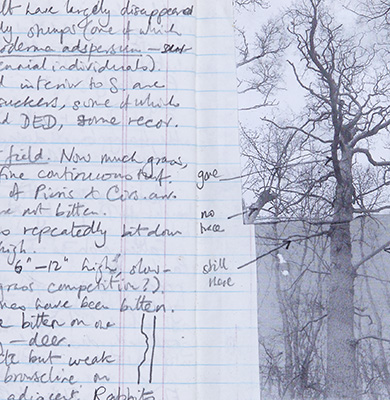 lt have largely disappeared
dy stumps (one of which
oderma adspersum —
ennial individuals).
d interior to S. are
suckers, some of which
d DED, some recor.
field. Now much grass,
fine continuous turf.
of Picris & Cirs. arv.
re not bitten.
o repeatedly bit down
high.
6"–12" high, slow-
grass competition?).
nes have been bitten.
e bitten on one
) — deer.
cte but weak
browseline on
adjacent. Rabbits
gone
no
here
still
here